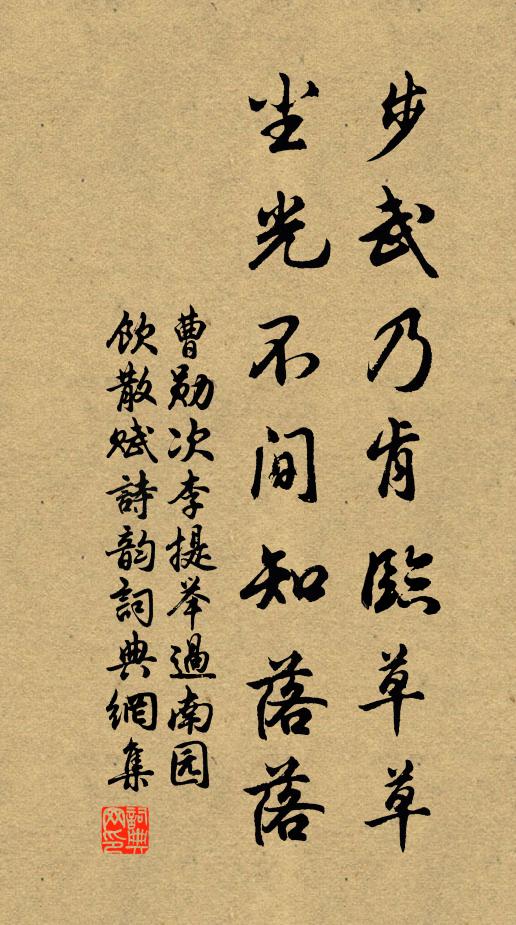 步武乃肯臨草草
尘光不间知落落
曹勋次李提举過南园
飲散赋詩韵詞典網集
詞典
网印